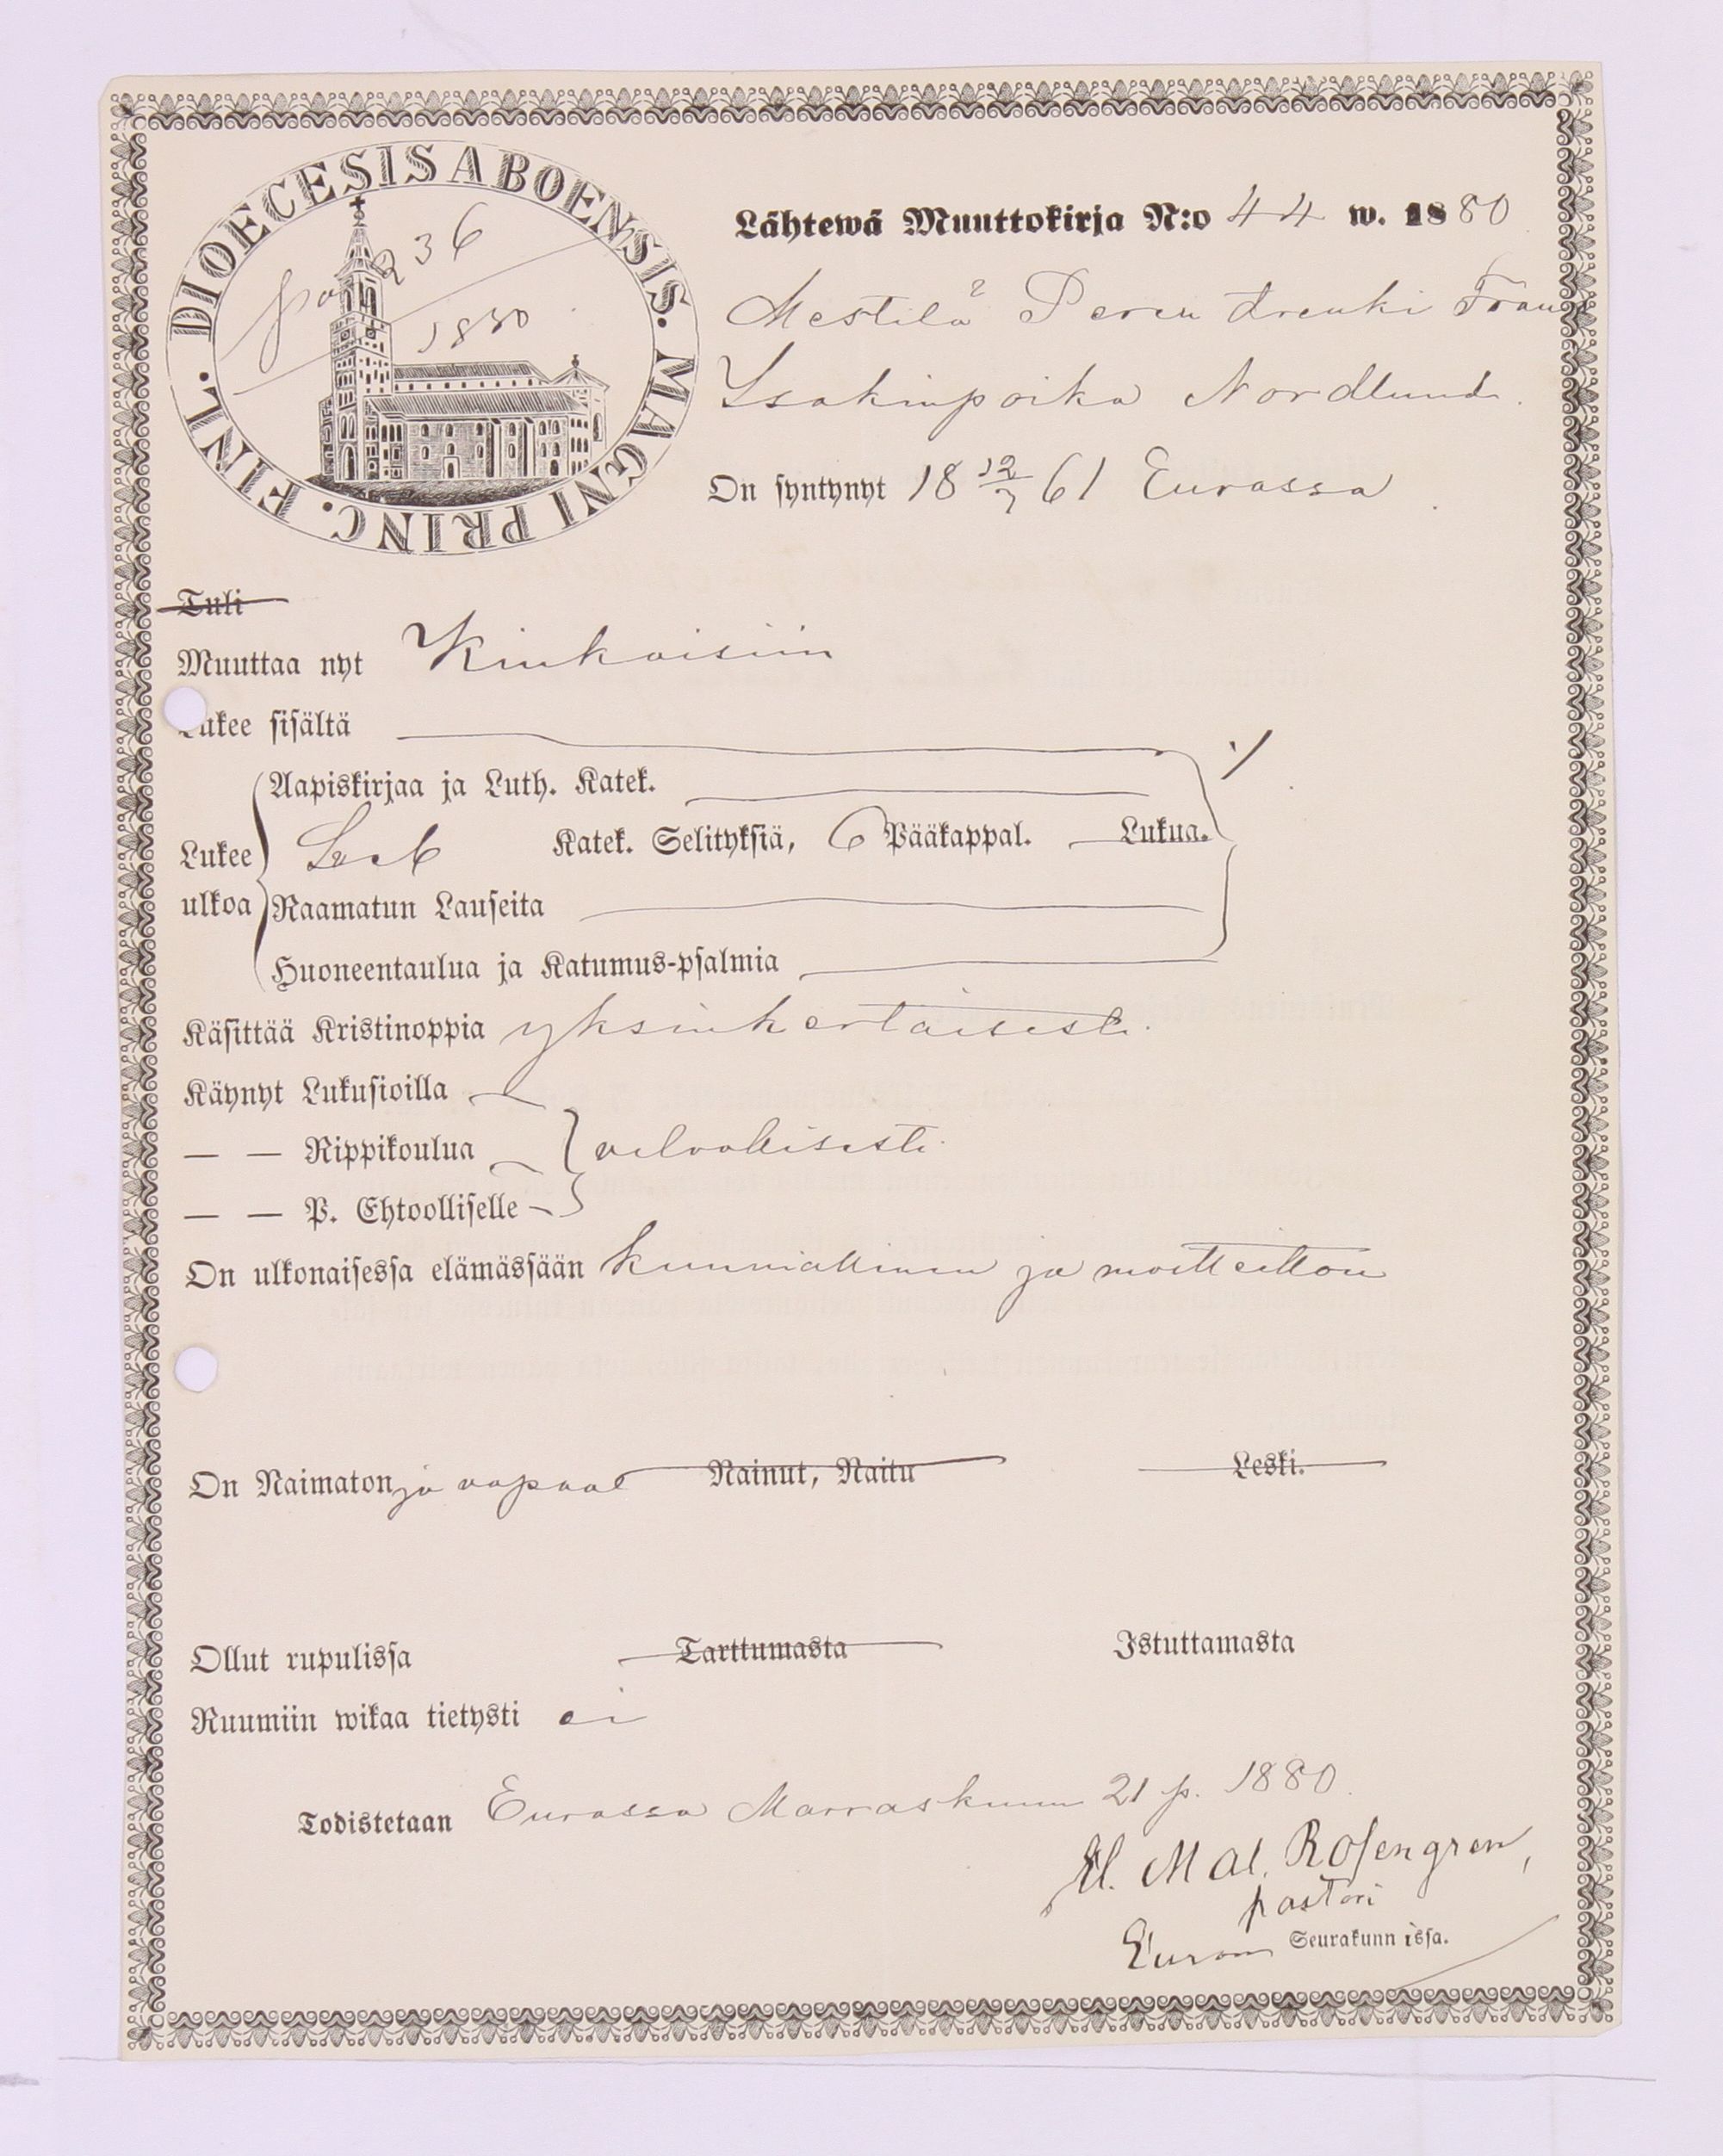 DIOECESIS ABOENSIS. MAGNI PRINC. FINL.
236
1880
Lähtewä Muuttokirja N:o 44 w. 1880
Mestilä Peren trenki Frans
Isakinpoika Nordlund.
On syntynyt 18 12/7 61 Eurassa
Tuli
Muuttaa nyt Kiukaisiin
Lukee sisältä
Aapiskirjaa ja Luth. Katek.
Lukee ulkoa Katek. Selityksiä, 6 Pääkappal. Lukua.
Raamatun Lauseita
Huoneentaulua ja Katumus-psalmia
Käsittää Kristinoppia yksinkertaisesti.
Käynyt Lukusioilla
— — Rippikoulua
— — P. Ehtoolliselle
On ulkonaisessa elämässään kunniallinen ja moitteeton
On Naimaton ja vapaa Nainut, Naitu Leski.
Ollut rupulissa Tarttumasta Istuttamasta
Ruumiin wikaa tietysti ei
Todistetaan Eurassa Marraskuun 21 p. 1880.
Mal. Rosengren,
pastori
Euran Seurakunnissa.